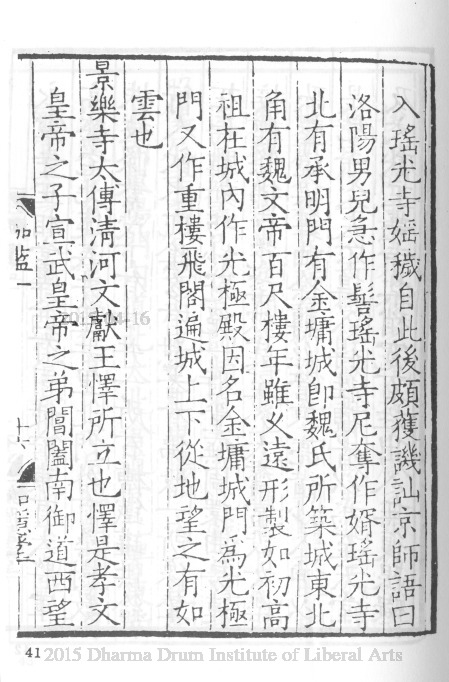 入瑤光寺婬穢自此後頗獲譏訕京師語曰
洛陽男兒急作髻瑤光寺尼奪作婿瑤光寺
北有承明門有金墉城卽魏氏所築城東北
角有魏文帝百尺樓年雖乆遠形製如初高
祖在城內作光極殿因名金墉城門爲光極
門又作重樓飛閣遍城上下從地望之有如
雲也
景樂寺太傅淸河文獻王懌所立也懌是孝文
皇帝之子宣武皇帝之弟閶闔南御道西望
伽藍一
十六
41 2015 Dharma Drum Institute of Liberal Arts